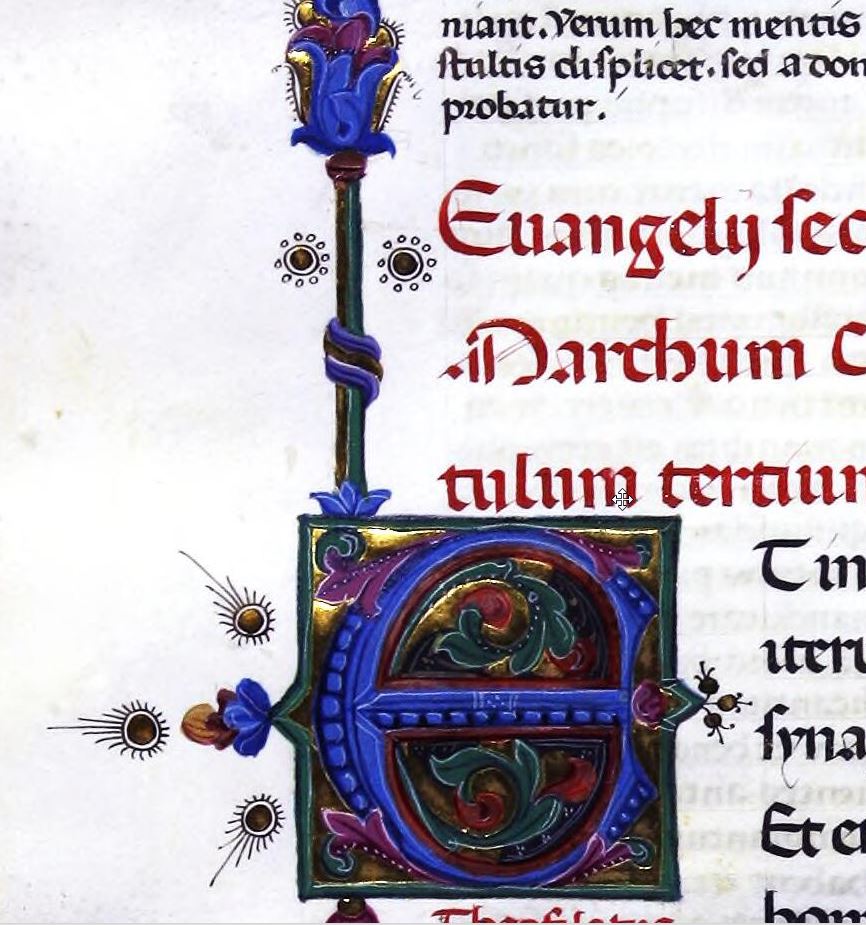 niant. Verum hec mentis
stultis displicet. sed a don
probatur.
Euangelij sec
Marchum C
tulum tertium
E
T in
iteru
syna
Et er
hom
Theofilatus